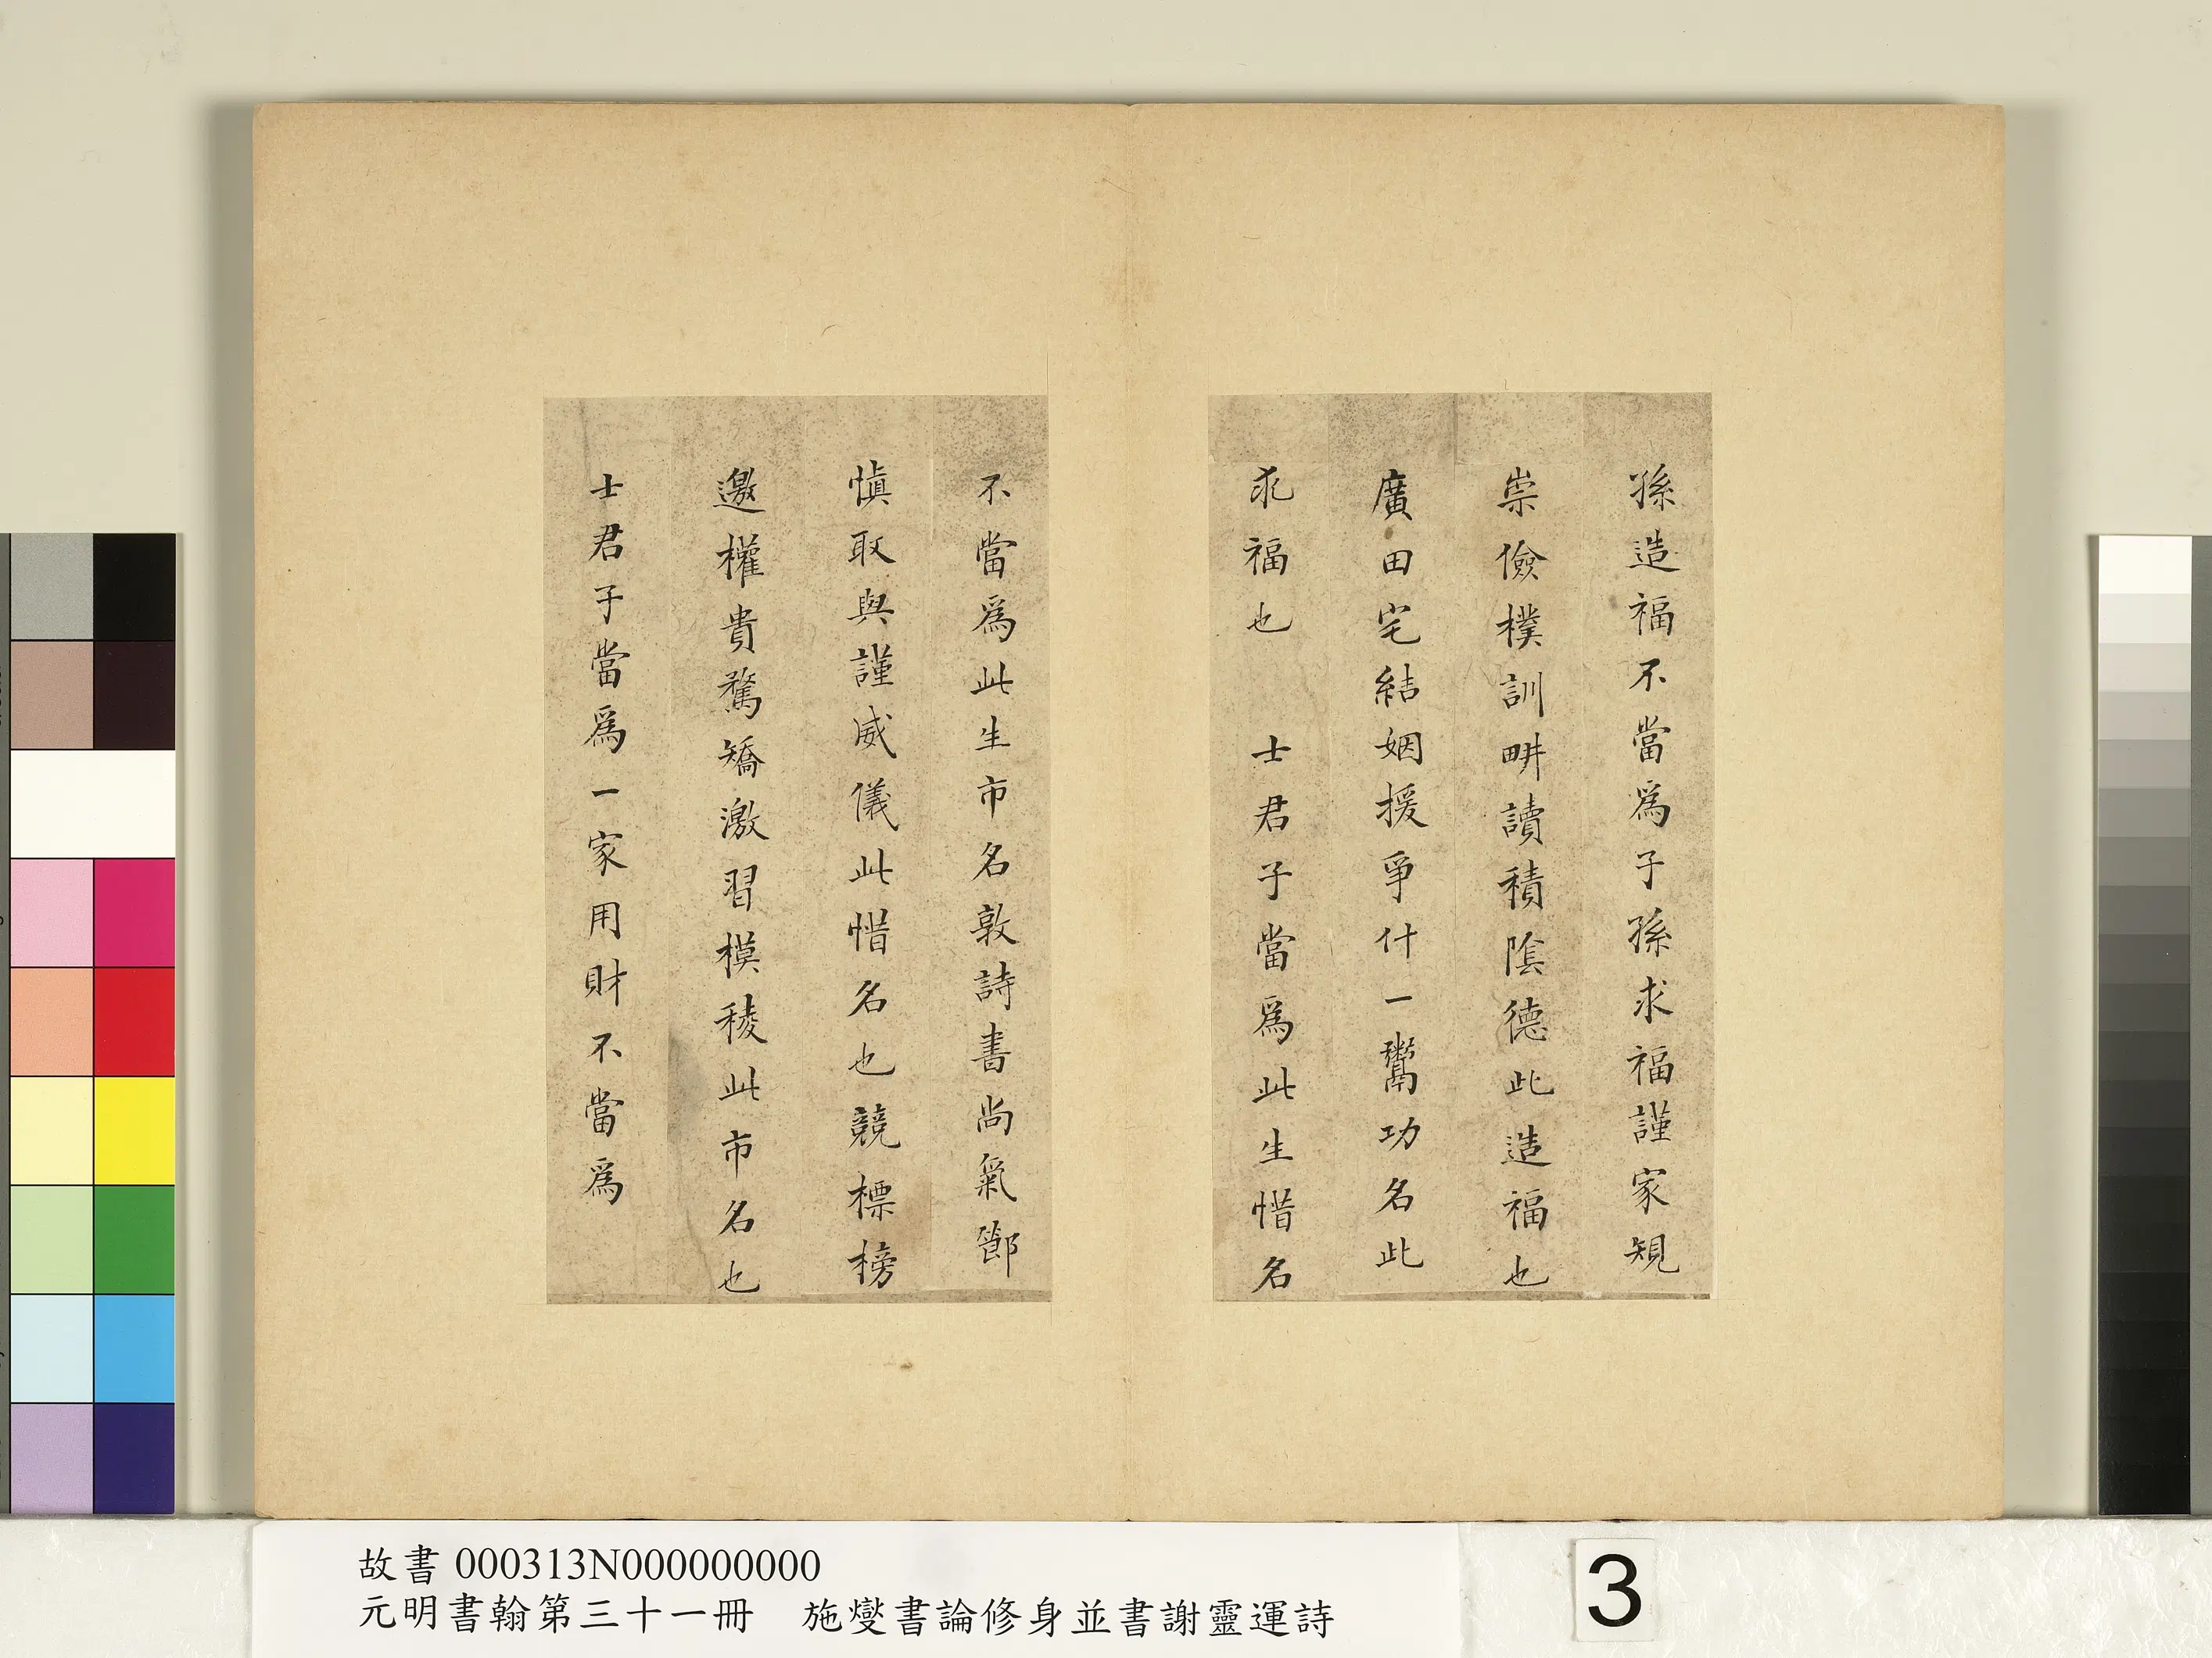 孫造福不當爲子孫求福謹家規
崇儉樸訓畊讀積陰德此造福也
廣田宅結姻援爭什一鬻功名此
求福也　士君子當爲此生惜名
不當爲此生市名敦詩書尚氣節
慎取與謹威儀此惜名也競標榜
邀權貴騖矯激習模稜此市名也
士君子當爲一家用財不當爲
故書 000313N000000000
元明書翰第三十一冊　施燮書論修身並書謝靈運詩
3